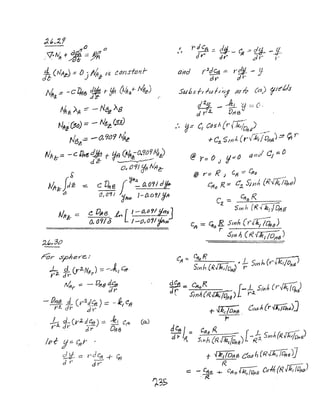 26.29
∇·N_A + ∂C_A/∂t = R_A
d/dz (N_Az) = 0 ; N_Az is constant
N_Az = -C D_AB dy_A/dz + y_A (N_Az + N_Bz)
N_A λ_A = - N_B λ_B
N_Az = -0.909 N_Bz
0.091 y_A N_Az
N_Az ∫dz = C D_AB ∫ -0.091 dy_A / 1-0.091 y_A
N_Az = C D_AB / 0.091 δ ln [ 1-0.091 y_Aδ / 1-0.091 y_A∞ ]
26.30
For sphere:
1/r² d/dr (r² N_Ar) = -k₁ C_A
N_Ar = - D_AB dC_A/dr
- D_AB/r² d/dr (r² dC_A/dr) = - k₁ C_A
1/r² d/dr (r² dC_A/dr) = k₁/D_AB C_A (a)
let y = C_A r
dy/dr = r dC_A/dr + C_A
∴ r dC_A/dr = dy/dr - C_A = dy/dr - y/r
and r² dC_A/dr = r dy/dr - y
Substituting into (a) yields
d²y/dr² - k₁/D_AB y = 0
∴ y = C₁ Cosh (r √k₁/D_AB)
+ C₂ Sinh (r √k₁/D_AB) = C_A r
@ r = 0, y = 0 and C₁ = 0
@ r = R, C_A = C_AR
C_AR R = C₂ Sinh (R √k₁/D_AB)
C₂ = C_AR R / Sinh (R √k₁/D_AB)
C_A = C_AR R/r Sinh (r √k₁/D_AB) / Sinh (R √k₁/D_AB)
C_A = C_AR R / Sinh (R √k₁/D_AB) · 1/r Sinh (r √k₁/D_AB)
dC_A/dr = C_AR R / Sinh (R √k₁/D_AB) [ - 1/r² Sinh (r √k₁/D_AB)
+ √k₁/D_AB / r Cosh (r √k₁/D_AB) ]
dC_A/dr |_R = C_AR R / Sinh (R √k₁/D_AB) [ - 1/R² Sinh (R √k₁/D_AB)
+ √k₁/D_AB / R Cosh (R √k₁/D_AB) ]
= - C_AR/R + C_AR √k₁/D_AB Coth (R √k₁/D_AB)
235